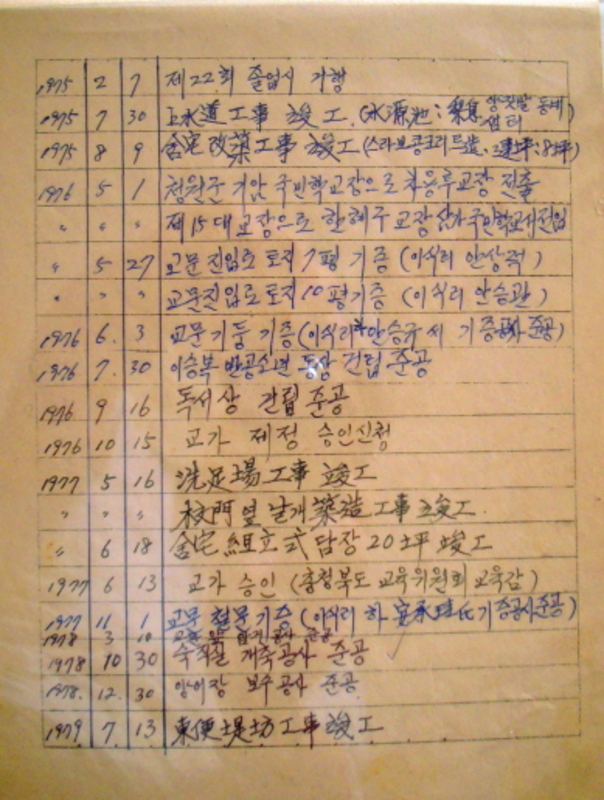 1975 2 7 제22회 졸업식 거행
1975 7 30 上水道工事 竣工 (水源池: 동계 샘터)
1975 8 9 舍宅改築工事 竣工 (스라브콩크리트造, 建坪: 8坪)
1976 5 1 청원군 가암 국민학교장으로 차용루교장 전출
〃 〃 〃 제15대 교장으로 한혜주 교장 국민학교에서전입
〃 5 27 교문 진입로 토지 7평 기증 (이식리 안상적)
〃 〃 〃 교문진입로토지 10평기증 (이식리 안승관)
1976 6. 3 교문기둥 기증(이식리 안승규 씨 기증공사 준공)
1976 7. 30 이승복 반공소년 동상 건립 준공
1976 9 16 독서상 건립 준공
1976 10 15 교가 제정 승인신청
1977 5 16 洗足場工事 竣工
〃 〃 〃 校門옆 날개築造工事 竣工.
〃 6 18 舍宅組立式담장 20坪 竣工
1977 6 13 교가 승인 (충청북도 교육위원회 교육감)
1977 11 1 교문 철문기증 (이식리 하 氏 기증공사준공)
1978 3 10 공사 준공
1978 10 30 숙직실 개축공사 준공
1978. 12. 30 양어장 보수공사 준공
1979 7 13 東便堤坊工事竣工